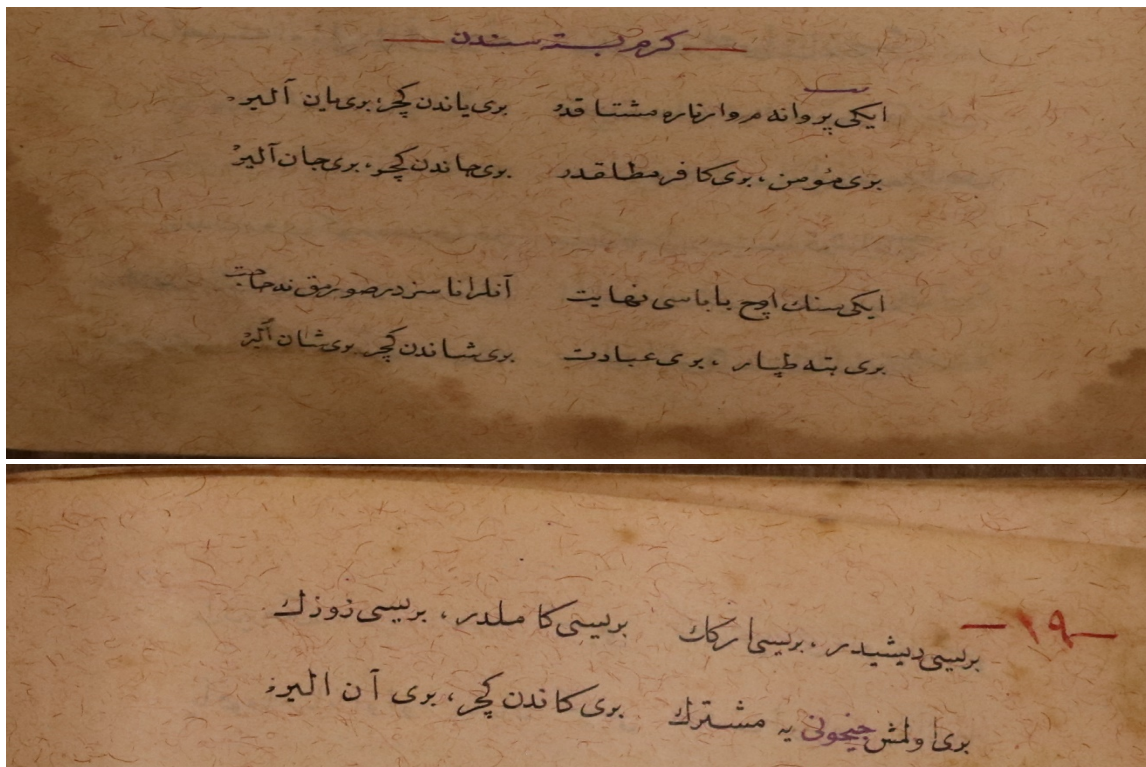 — كرم بسته سندن —
ايكى پروانه م وار ناره مشتاقدر بری ياندن كچر، بری يان آلير.
بری مؤمن، بری كافر مطلقدر بری جاندن كچر، بری جان آلير
ايكى سنك اوچ باباسی نهايت آنلر اناسزدر صورمق نه حاجت
بری بته طپار، بری عبادت بری شاندن كچر بری شان آلير
— ١٩ —
بريسی ديشيدر، بريسی اركك بريسی كاملدر، بريسی زوزك
بری اولمش جيحونی يه مشترك بری كاندن كچر، بری آن الير.